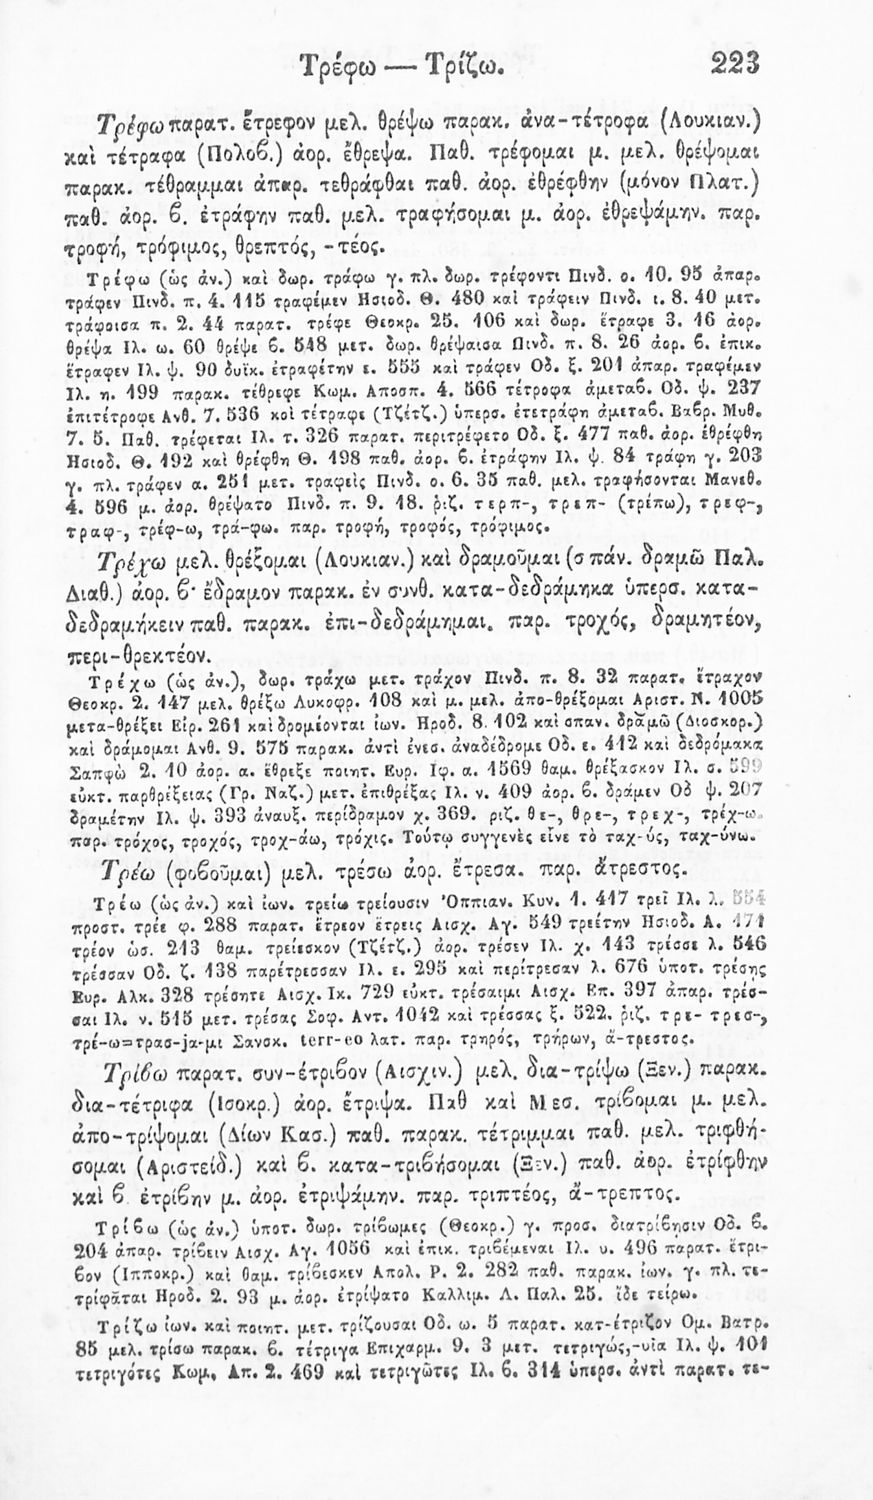 Τρέφω — Τρίζω. 223
Τρέφω παρατ. ἔτρεφον μελ. θρέψω παρακ. ἀνα-τέτροφα (Λουκιαν.)
καὶ τέτραφα (Πολυϐ.) ἀορ. ἔθρεψα. Παθ. τρέφομαι μ. μελ. θρέψομαι
παρακ. τέθραμμαι ἀπαρ. τεθράφθαι παθ. ἀορ. ἐθρέφθην (μόνον Πλατ.)
παθ. ἀορ. ϐ. ἐτράφην παθ. μελ. τραφήσομαι μ. ἀορ. ἐθρεψάμην. παρ.
τροφή, τρόφιμος, θρεπτός, -τέος.
Τρέφω (ὡς ἀν.) καὶ δωρ. τράφω γ. πλ. δωρ. τρέφοντι Πινδ. ο. 10. 95 ἀπαρ.
τράφεν Πινδ. π. 4. 115 τραφέμεν Ησιοδ. Θ. 480 καὶ τράφειν Πινδ. ι. 8. 40 μετ.
τράφοισα π. 2. 44 παρατ. τρέφε Θεοκρ. 25. 106 καὶ δωρ. ἔτραφε 3. 16 ἀορ.
θρέψα Ιλ. ω. 60 θρέψε ϐ. 548 μετ. δωρ. θρέψαισα Πινδ. π. 8. 26 ἀορ. ϐ. ἐπικ.
ἔτραφεν Ιλ. ψ. 90 δυϊκ. ἐτραφέτην ε. 555 καὶ τράφεν Οδ. ξ. 201 ἀπαρ. τραφέμεν
Ιλ. η. 199 παρακ. τέθρεφε Κωμ. Αποσπ. 4. 566 τέτροφα ἀμεταϐ. Οδ. ψ. 237
ἐπιτέτροφε Ανθ. 7. 536 κοὶ τέτραφε (Τζέτζ.) ὑπερσ. ἐτετράφη ἀμεταϐ. Βαϐρ. Μυθ.
7. 5. Παθ. τρέφεται Ιλ. τ. 326 παρατ. περιτρέφετο Οδ. ξ. 477 παθ. ἀορ. ἐθρέφθη
Ησιοδ. Θ. 192 καὶ θρέφθη Θ. 198 παθ. ἀορ. ϐ. ἐτράφην Ιλ. ψ. 84 τράφη γ. 203
γ. πλ. τράφεν α. 251 μετ. τραφεὶς Πινδ. ο. 6. 35 παθ. μελ. τραφήσονται Μανεθ.
4. 596 μ. ἀορ. θρέψατο Πινδ. π. 9. 18. ῥιζ. τερπ-, τρεπ- (τρέπω), τρεφ-,
τραφ-, τρέφ-ω, τρά-φω. παρ. τροφή, τροφός, τρόφιμος.
Τρέχω μελ. θρέξομαι (Λουκιαν.) καὶ δραμοῦμαι (σπάν. δραμῶ Παλ.
Διαθ.) ἀορ. ϐ· ἔδραμον παρακ. ἐν συνθ. κατα-δεδράμηκα ὑπερσ. κατα-
δεδραμήκειν παθ. παρακ. ἐπι-δεδράμημαι. παρ. τροχός, δραμητέον,
περι-θρεκτέον.
Τρέχω (ὡς ἀν.), δωρ. τράχω μετ. τράχον Πινδ. π. 8. 32 παρατ. ἔτραχον
Θεοκρ. 2. 147 μελ. θρέξω Λυκοφρ. 108 καὶ μ. μελ. ἀπο-θρέξομαι Αριστ. Ν. 1005
μετα-θρέξει Εἰρ. 261 καὶ δρομέονται ἰων. Ηροδ. 8. 102 καὶ σπαν. δραμῶ (Διοσκορ.)
καὶ δράμομαι Ανθ. 9. 575 παρακ. ἀντὶ ἐνεσ. ἀναδέδρομε Οδ. ε. 412 καὶ δεδρόμακα
Σαπφὼ 2. 10 ἀορ. α. ἔθρεξε ποιητ. Ευρ. Ιφ. α. 1569 θαμ. θρέξασκον Ιλ. σ. 599
εὐκτ. παρθρέξειας (Γρ. Ναζ.) μετ. ἐπιθρέξας Ιλ. ν. 409 ἀορ. ϐ. δράμεν Οδ ψ. 207
δραμέτην Ιλ. ψ. 393 ἀναυξ. περίδραμον χ. 369. ριζ. θε-, θρε-, τρεχ-, τρέχ-ω.
παρ. τρόχος, τροχός, τροχ-άω, τρόχις. Τούτῳ συγγενὲς εἶνε τὸ ταχ-ύς, ταχ-ύνω.
Τρέω (φοϐοῦμαι) μελ. τρέσω ἀορ. ἔτρεσα. παρ. ἄτρεστος.
Τρέω (ὡς ἀν.) καὶ ἰων. τρείω τρείουσιν Ὀππιαν. Κυν. 1. 417 τρεῖ Ιλ. λ. 554
προστ. τρέε φ. 288 παρατ. ἔτρεον ἔτρεις Αισχ. Αγ. 549 τρεέτην Ησιοδ. Α. 171
τρέον ὡσ. 213 θαμ. τρείεσκον (Τζέτζ.) ἀορ. τρέσεν Ιλ. χ. 143 τρέσσε λ. 546
τρέσσαν Οδ. ζ. 138 παρέτρεσσαν Ιλ. ε. 295 καὶ περίτρεσαν λ. 676 ὑποτ. τρέσῃς
Ευρ. Αλκ. 328 τρέσητε Αισχ. Ικ. 729 εὐκτ. τρέσαιμι Αισχ. Επ. 397 ἀπαρ. τρέσ-
σαι Ιλ. ν. 515 μετ. τρέσας Σοφ. Αντ. 1042 καὶ τρέσσας ξ. 522. ῥιζ. τρε- τρεσ-,
τρέ-ω=τρασ-ja-μι Σανσκ. terr-eo λατ. παρ. τρηρός, τρήρων, ἄ-τρεστος.
Τρίϐω παρατ. συν-έτριϐον (Αισχιν.) μελ. δια-τρίψω (Ξεν.) παρακ.
δια-τέτριφα (Ισοκρ.) ἀορ. ἔτριψα. Παθ καὶ Μεσ. τρίϐομαι μ. μελ.
ἀπο-τρίψομαι (Δίων Κασ.) παθ. παρακ. τέτριμμαι παθ. μελ. τριφθή-
σομαι (Αριστείδ.) καὶ ϐ. κατα-τριϐήσομαι (Ξεν.) παθ. ἀορ. ἐτρίφθην
καὶ ϐ. ἐτρίϐην μ. ἀορ. ἐτριψάμην. παρ. τριπτέος, ἄ-τρεπτος.
Τρίϐω (ὡς ἀν.) ὑποτ. δωρ. τρίϐωμες (Θεοκρ.) γ. προσ. διατρίϐησιν Οδ. ϐ.
204 ἀπαρ. τρίϐειν Αισχ. Αγ. 1056 καὶ ἐπικ. τριϐέμεναι Ιλ. υ. 496 παρατ. ἔτρι-
ϐον (Ιπποκρ.) καὶ θαμ. τρίϐεσκεν Απολ. Ρ. 2. 282 παθ. παρακ. ἰων. γ. πλ. τε-
τρίφαται Ηροδ. 2. 93 μ. ἀορ. ἐτρίψατο Καλλιμ. Λ. Παλ. 25. ἴδε τείρω.
Τρίζω ἰων. καὶ ποιητ. μετ. τρίζουσαι Οδ. ω. 5 παρατ. κατ-έτριζον Ομ. Βατρ.
85 μελ. τρίσω παρακ. ϐ. τέτριγα Επιχαρμ. 9. 3 μετ. τετριγώς,-υῖα Ιλ. ψ. 101
τετριγότες Κωμ. Απ. 2. 469 καὶ τετριγῶτες Ιλ. ϐ. 314 ὑπερσ. ἀντὶ παρατ. τε-